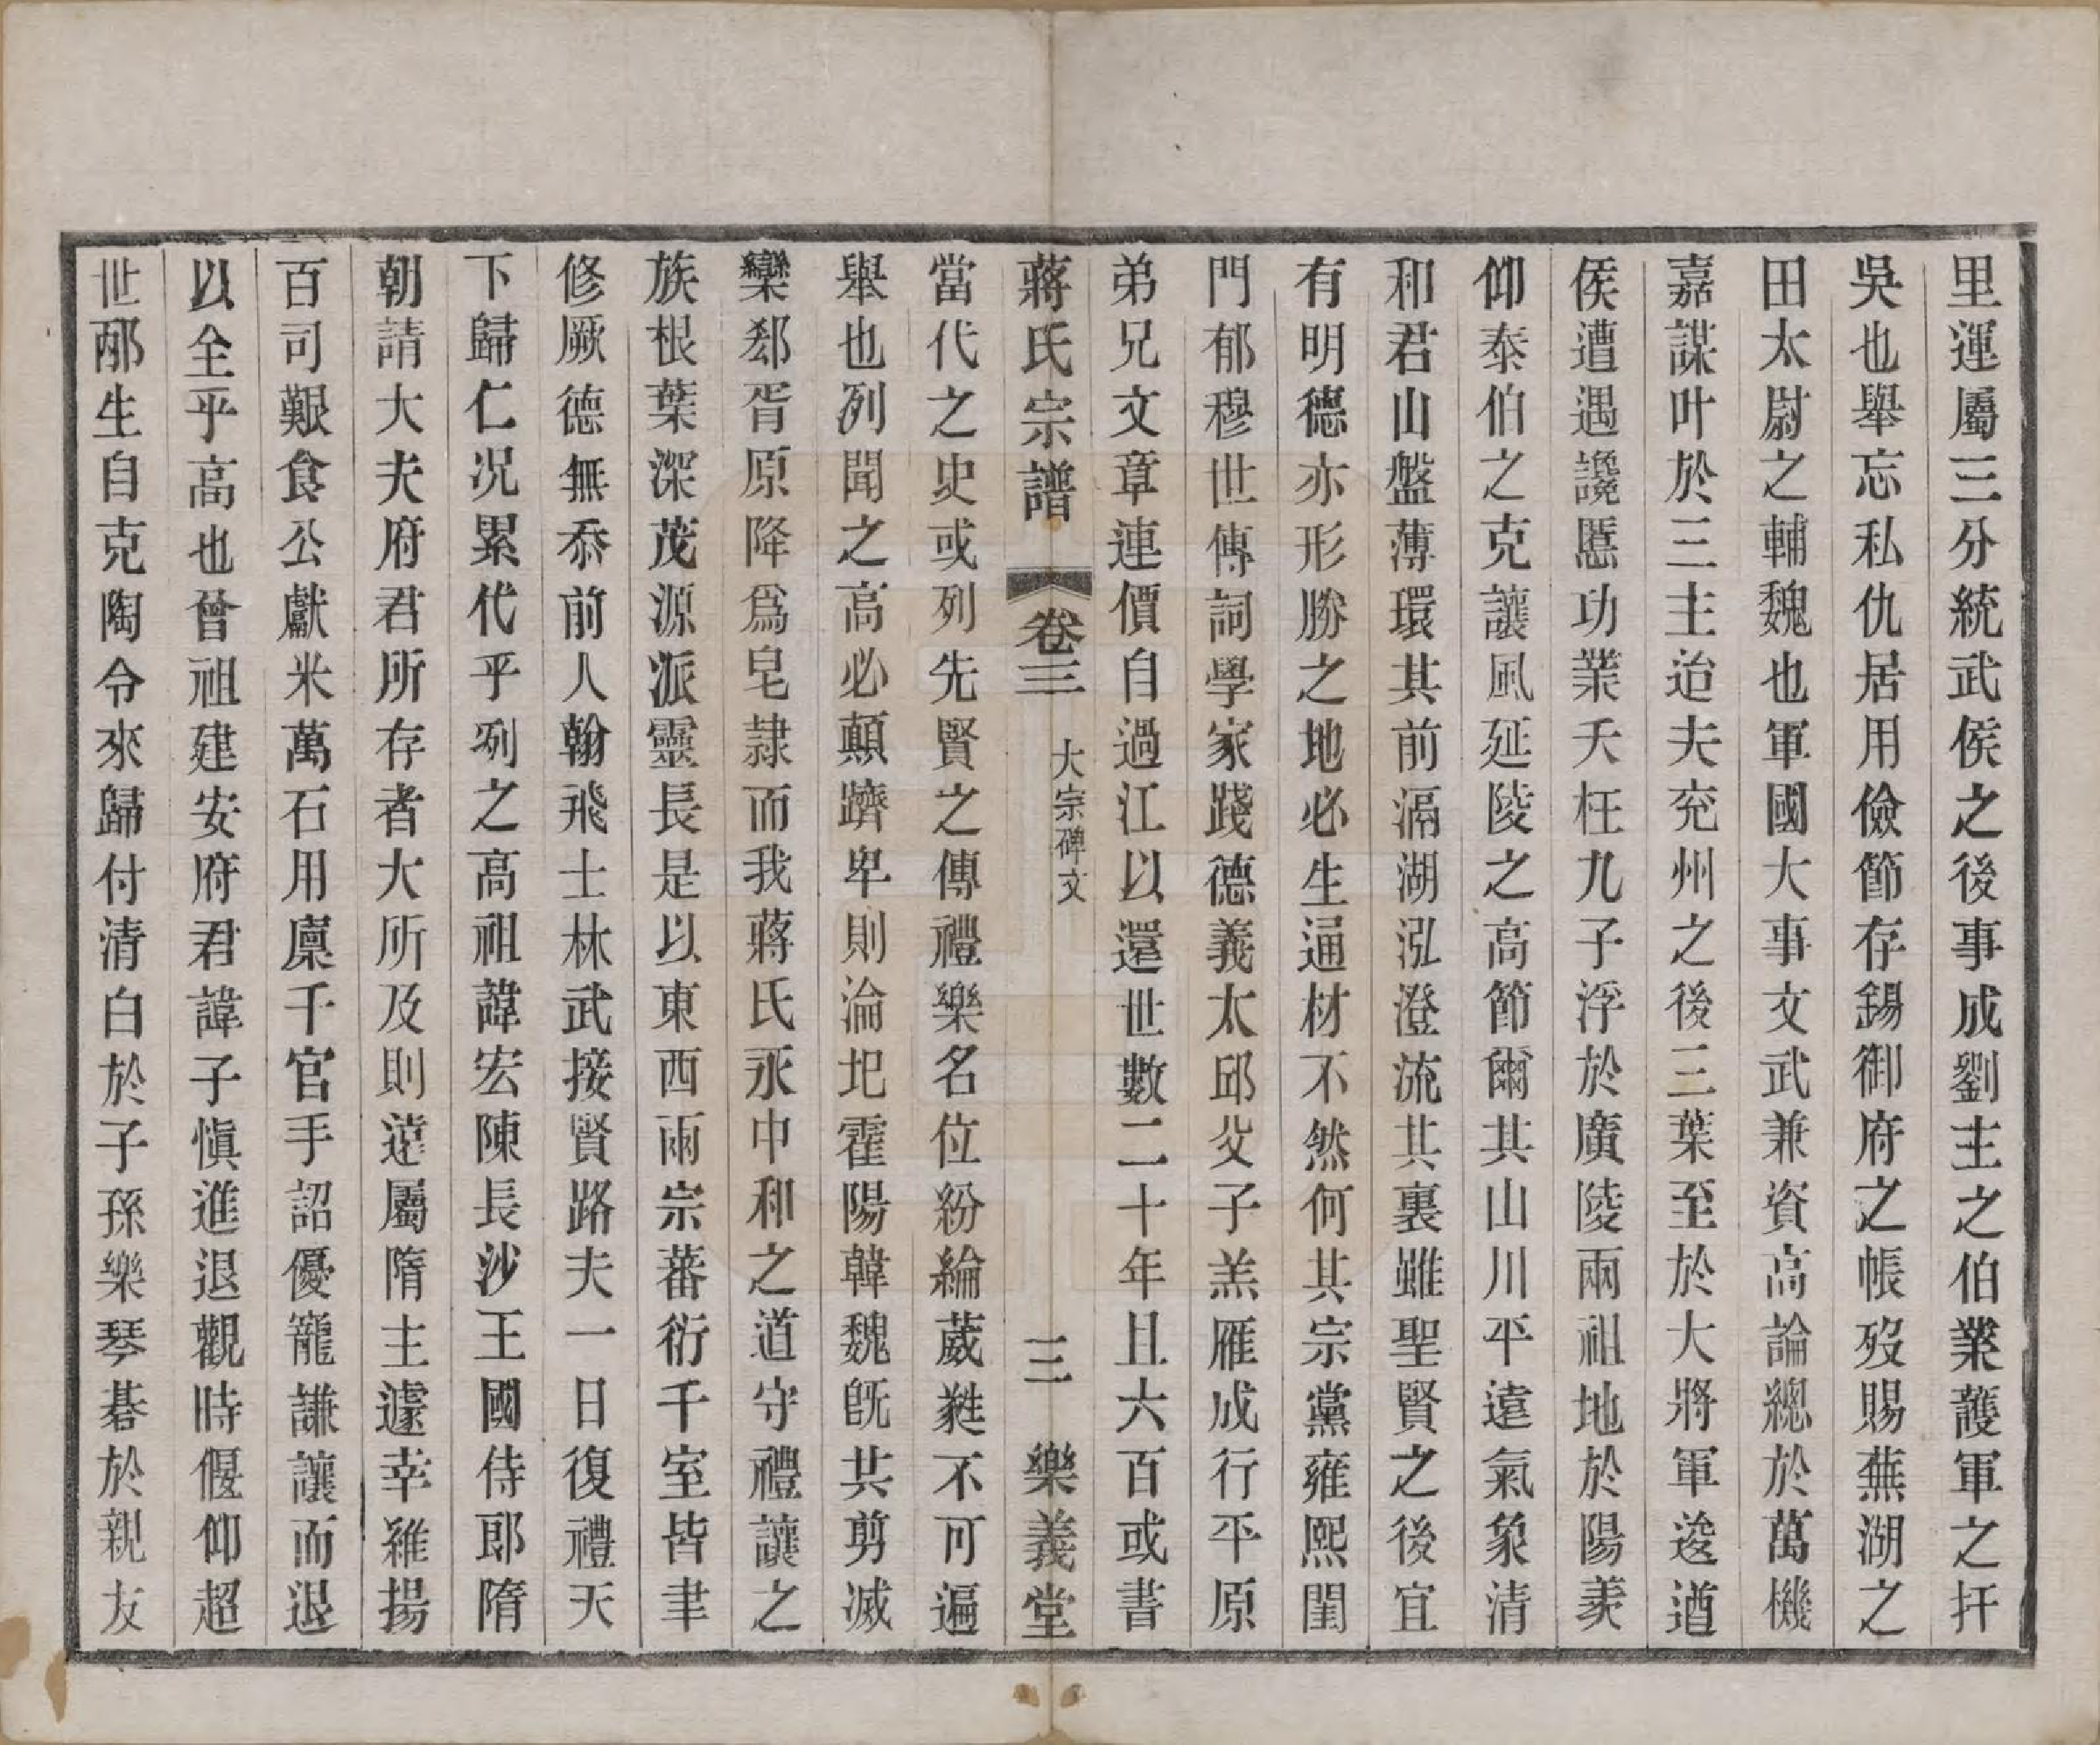 里運屬三分統武侯之後事成劉主之伯業護軍之扞
吳也舉忘私仇居用儉節存錫御府之帳歿賜蕪湖之
田太尉之輔魏也軍國大事文武兼資高論總於萬機
嘉謀叶於三主迨夫兖州之後三葉至於大將軍逡遒
侯遭遇讒慝功業夭枉九子浮於廣陵兩祖地於陽羨
仰泰伯之克讓風延陵之高節爾其山川平遠氣象清
和君山盤薄環其前滆湖泓澄流其裏雖聖賢之後宜
有明德亦形勝之地必生通材不然何其宗黨雍熙閨
門郁穆世傳詞學家踐德義太邱父子羔雁成行平原
弟兄文章連價自過江以還世數二十年且六百或書
蔣氏宗譜 卷三 大宗碑文 三 樂義堂
當代之史或列先賢之傳禮樂名位紛綸葳蕤不可遍
舉也列聞之高必顛躋卑則淪圯霍陽韓魏既共剪滅
欒郄胥原降爲皂隷而我蔣氏永中和之道守禮讓之
族根葉深茂源派靈長是以東西兩宗蕃衍千室皆聿
修厥德無忝前人翰飛士林武接賢路夫一日復禮天
下歸仁況累代乎列之高祖諱宏陳長沙王國侍郎隋
朝請大夫府君所存者大所及則遠屬隋主遽幸維揚
百司艱食公獻米萬石用廩千官手詔優寵謙讓而退
以全乎高也曾祖建安府君諱子愼進退觀時偃仰超
世邴生自克陶令來歸付清白於子孫樂琴碁於親友